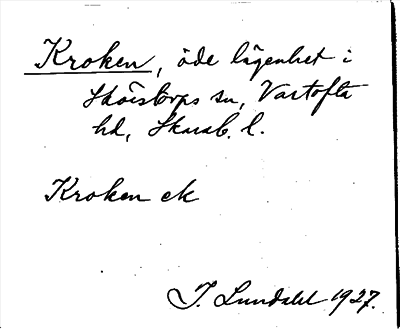 Kroken, öde lägenhet i
Skörstorps sn, Vartofta
hd, Skarab. l.
Kroken ek
I. Lundahl 1927.